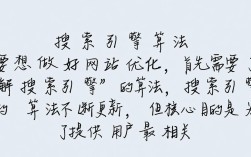 搜索引擎算法
要想做好网站优化，首先需要
解搜索引擎”的算法，搜索引擎
的 算法不断更新，但核心目的是
了提供用户最相关